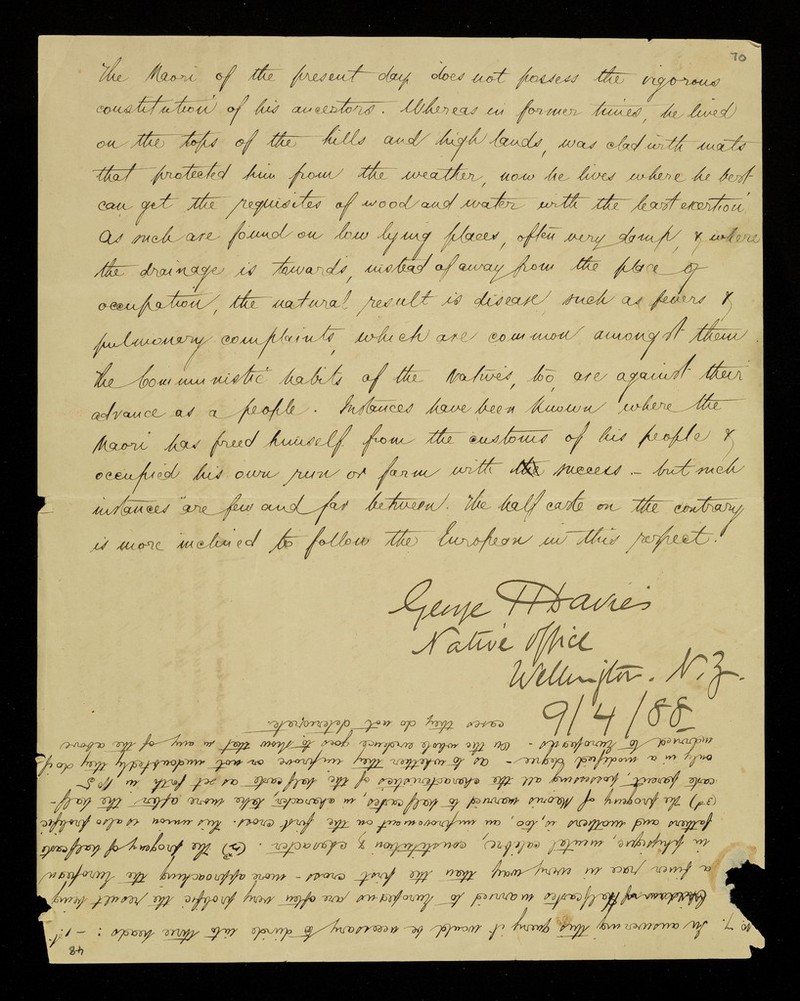 70
The Maori of the present day does not possess the vigorous
constitution of his ancestors. Whereas in former times, he lived
on the tops of the hills and high lands, was clad with mats
that protected him from the weather, now he lives where he best
can get the requisites of wood and water with the least exertion
As such are found on low lying places, often very damp, & where
the drainage is towards, instead of away from the place of
occupation, the natural result is disease such as fevers &
pulmonary complaints, which are common amongst them
The Communistic habits of the Natives, too, are against their
advance as a people. Instances have been known where the
Maori has freed himself from the customs of his people &
occupied his own run or farm with success - but such
instances are few and far between. The half caste on the contrary
is more inclined to follow the European in this respect.
George H Davies
Native Office
Wellington. N.Z.
9/4/88
48
No 7. In answering this query it would be necessary to divide into three heads : -
half castes married to Europeans are often very prolific the result being
a finer race in every way than the first cross - more approaching the European
in physique, mental calibre, constitution & character. (2) The progeny of half caste
fathers and mothers is, too, an improvement on the first cross. this union is also prolific
(3d) The progeny of Maoris married to half castes, in character take more after the half-
caste parent, possessing all the characteristics of the half caste as set forth in No 5
only in a modified degree - as to whether they improve or not undoubtedly they do if
married to Europeans. On the whole evidence goes to show that in any of the above
cases they do not deteriorate.